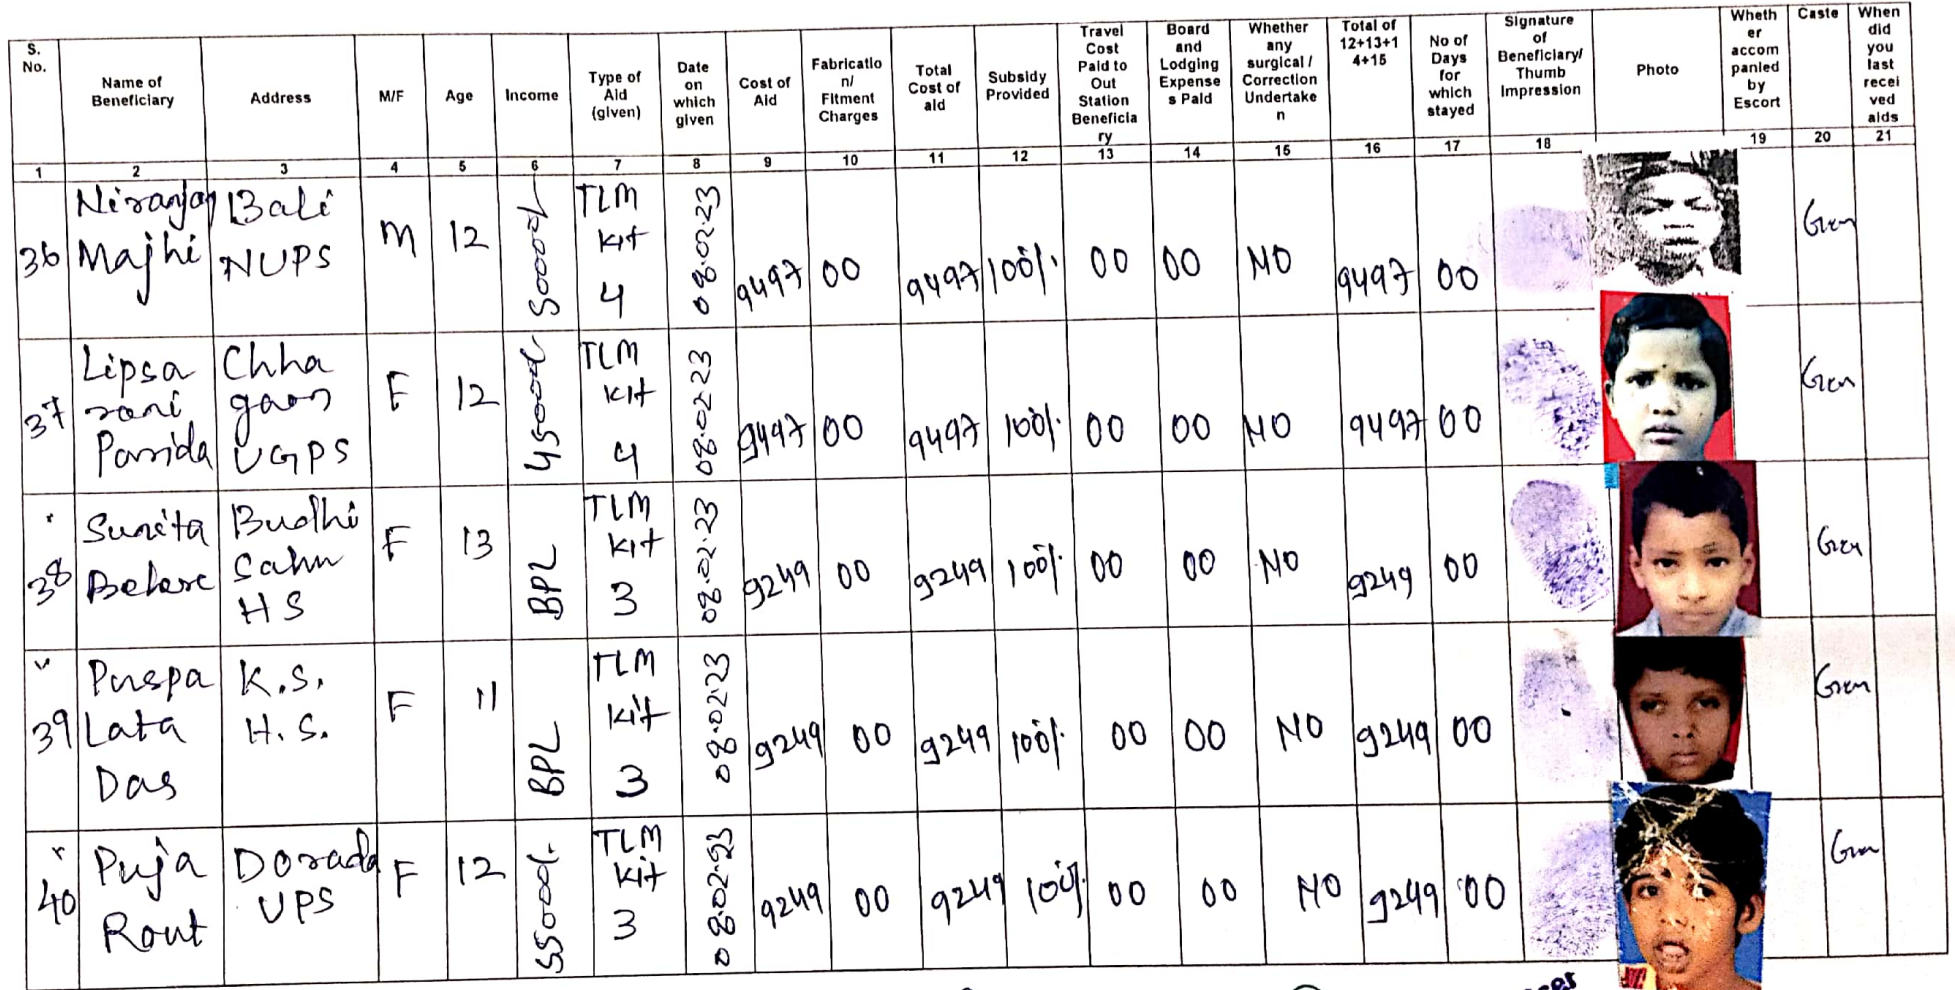 S. No. | Name of Beneficiary | Address | M/F | Age | Income | Type of Aid (given) | Date on which given | Cost of Aid | Fabrication/ Fitment Charges | Total Cost of aid | Subsidy Provided | Travel Cost Paid to Out Station Beneficiary | Board and Lodging Expenses Paid | Whether any surgical / Correction Undertaken | Total of 12+13+14+15 | No of Days for which stayed | Signature of Beneficiary/ Thumb Impression | Photo | Whether accompanied by Escort | Caste | When did you last recei ved aids
1 | 2 | 3 | 4 | 5 | 6 | 7 | 8 | 9 | 10 | 11 | 12 | 13 | 14 | 15 | 16 | 17 | 18 | 19 | 20 | 21
36 | Niranjan Majhi | Bali NUPS | M | 12 | 50000/- | TLM Kit 4 | 08.02.23 | 9497 | 00 | 9497 | 100%. | 00 | 00 | NO | 9497 | 00 | Gen
37 | Lipsa rani Parida | Chha gaon UGPS | F | 12 | 45000/- | TLM Kit 4 | 08.02.23 | 9497 | 00 | 9497 | 100%. | 00 | 00 | NO | 9497 | 00 | Gen
38 | Sunita Behere | Budhi Sahu HS | F | 13 | BPL | TLM Kit 3 | 08.02.23 | 9249 | 00 | 9249 | 100%. | 00 | 00 | NO | 9249 | 00 | Gen
39 | Puspa Lata Das | K.S. H.S. | F | 11 | BPL | TLM Kit 3 | 08.02.23 | 9249 | 00 | 9249 | 100%. | 00 | 00 | NO | 9249 | 00 | Gen
40 | Puja Rout | Dorada UPS | F | 12 | 55000/- | TLM Kit 3 | 08.02.23 | 9249 | 00 | 9249 | 100%. | 00 | 00 | NO | 9249 | 00 | Gen